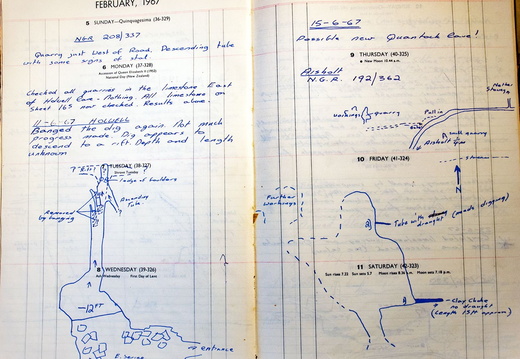 FEBRUARY, 1967
5 SUNDAY—Quinquagesima (36-329)
NGR 208/337
Quarry just West of Road. Descending tube
with some signs of stal.
6 MONDAY (37-328)
Accession of Queen Elizabeth II (1952)
National Day (New Zealand)
Checked all quarries in the limestone East
of Holwell Cave. Nothing. All limestone on
Sheet 165 now checked. Results above.
11-6-67 HOLWELL
Banged the dig again. Not much
progress made. Dig appears to
descend to a rift. Depth and length
unknown
7 TUESDAY (38-327)
Shrove Tuesday
? Rift
ledge of boulders
Ascending
Tube
Removed
by banging
8 WEDNESDAY (39-326)
Ash Wednesday First Day of Lent
12 FT
entrance
15-6-67
Possible new Quantock Cave!
9 THURSDAY (40-325)
New Moon 10.44 a.m.
Aisholt
N.G.R. 192/362
Nether
Stowey
workings
Path
small quarry
Aisholt
10 FRIDAY (41-324)
stream
Further
Workings
B
Tube with draught (needs digging)
11 SATURDAY (42-323)
Sun rises 7.22 Sun sets 5.7
A
Clay Choke
no draught
(Length 15 ft approx)